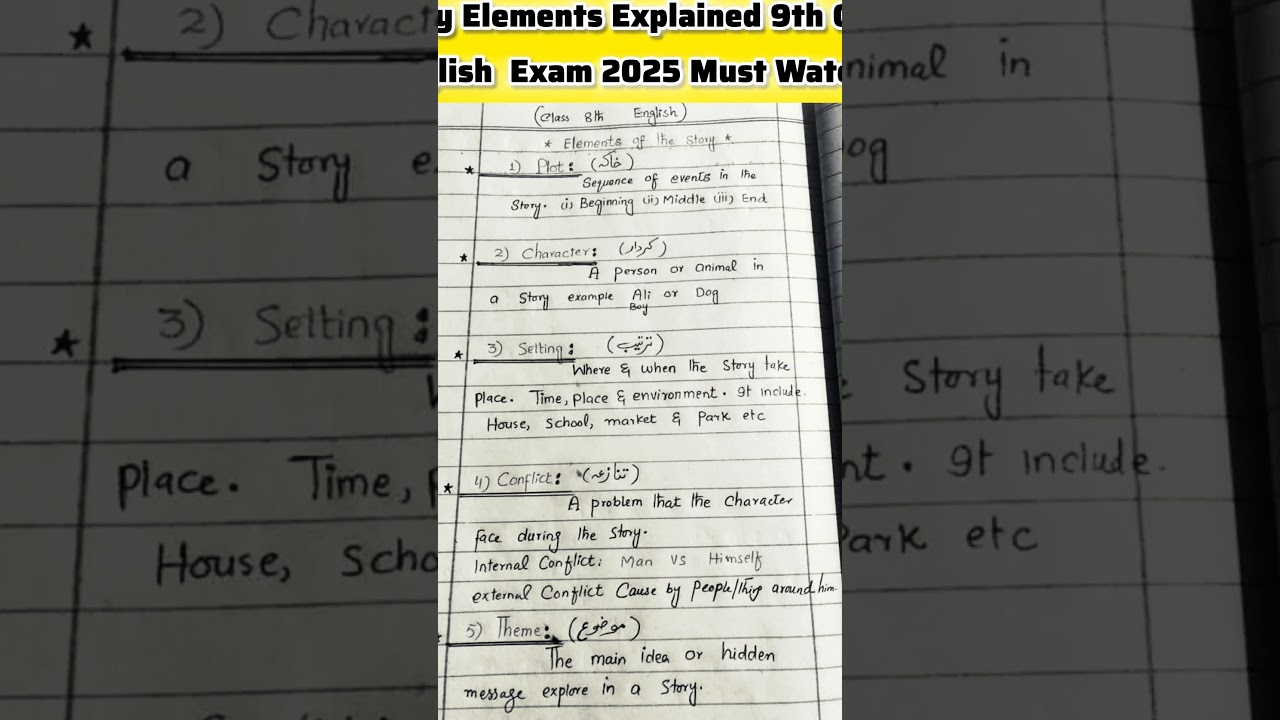 y Elements Explained 9th
lish Exam 2025 Must Wat
(Class 8th English)
* Elements of the Story *
★ 1) Plot: (خاکہ)
Sequence of events in the
Story. (i) Beginning (ii) Middle (iii) End
★ 2) Character: (کردار)
A person or animal in
a Story example Ali or Dog
Boy
★ 3) Setting: (ترتیب)
Where & when the Story take
place. Time, place & environment. It include.
House, School, market & Park etc
★ 4) Conflict: (تنازعہ)
A problem that the Character
face during the Story.
Internal Conflict: Man vs Himself
external Conflict Cause by People/thing around him.
5) Theme: (موضوع)
The main idea or hidden
message explore in a Story.
★ 2) Charact
nimal in
a Story e
og
★ 3) Setting:
Story take
place. Time,
nt. It include.
House, Scho
Park etc